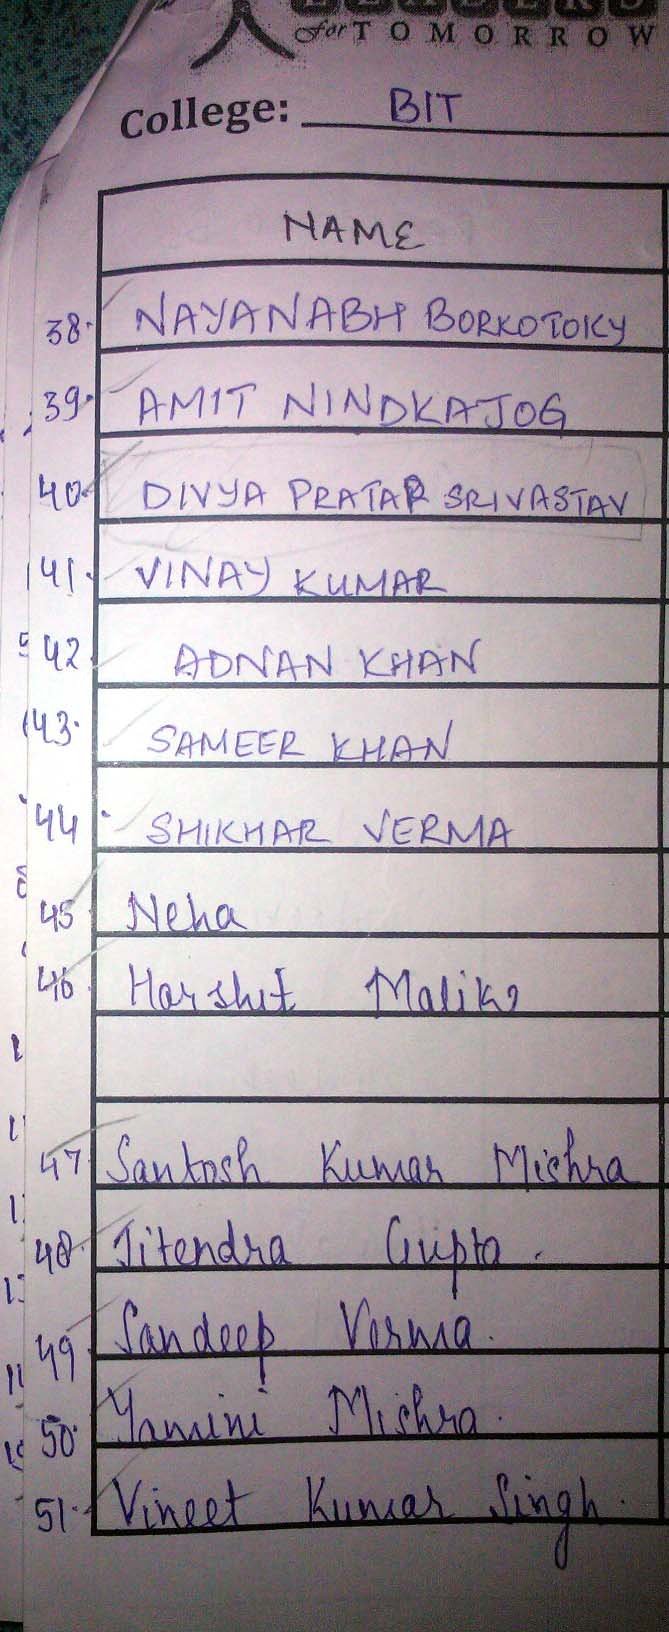 LEADERS
for TOMORROW
College: BIT
NAME
38. NAYANABH BORKOTOKY
39. AMIT NINDKAJOG
40. DIVYA PRATAP SRIVASTAV
41. VINAY KUMAR
42 ADNAN KHAN
43. SAMEER KHAN
44. SHIKHAR VERMA
45 Neha
46. Harshit Malik
47. Santosh Kumar Mishra
48. Jitendra Gupta.
49. Sandeep Verma.
50. Yamini Mishra.
51. Vineet Kumar Singh.